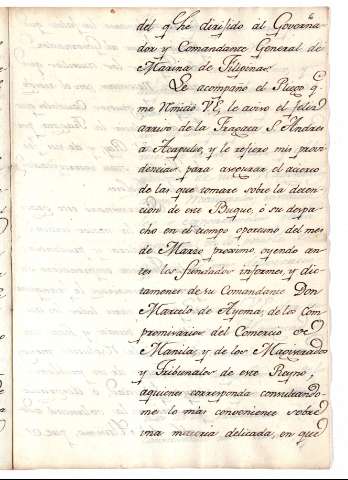 del q.e hé dirijido al Governa-
dor y Comandante General de
Marina de Filipinas.
Le acompaño el Pliego q.e
me VE, le aviso el feliz
arrivo de la Fragata S. Andres
á Acapulco, y le refiero mis provi-
dencias para asegurar el acierto
de las que tomare sobre la deten-
cion de este Buque, ó su despa-
cho en el tiempo oportuno del mes
de Marzo proximo, oyendo an-
tes los fundados informes, y dic-
tamenes de su Comandante Don
Marcelo de Ayerra, de los Com-
promisarios del Comercio de
Manila, y de los Magistrados
y Tribunales de este Reyno,
aquienes corresponda consultando-
me lo más conveniente sobre
una materia delicada, en que